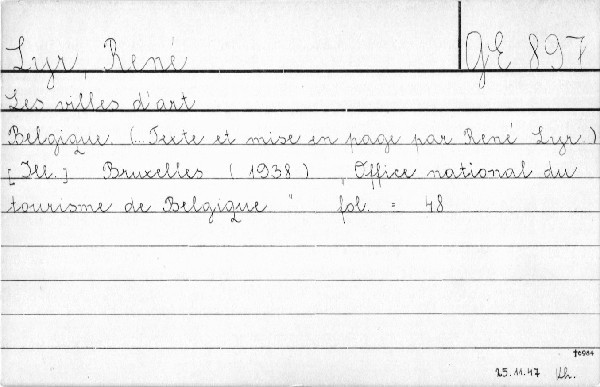 Lyr, René
GE 897
Les villes d'art
Belgique (... Texte et mise en page par René Lyr.)
[Ill.] Bruxelles (1938) "Office national du
tourisme de Belgique" fol. = 48
25.11.47